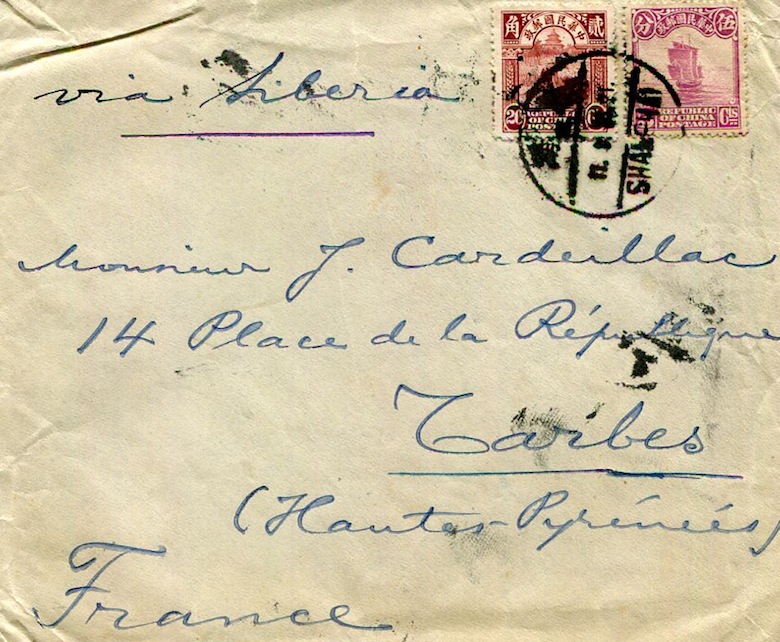 貳角
中華民國郵政
伍分
中華民國郵政
20
REPUBLIC
OF CHINA
POSTAGE
REPUBLIC
OF CHINA
POSTAGE
Cts
via Siberia
Monsieur J. Cardeillac
14 Place de la République
Tarbes
(Hautes-Pyrénées)
France